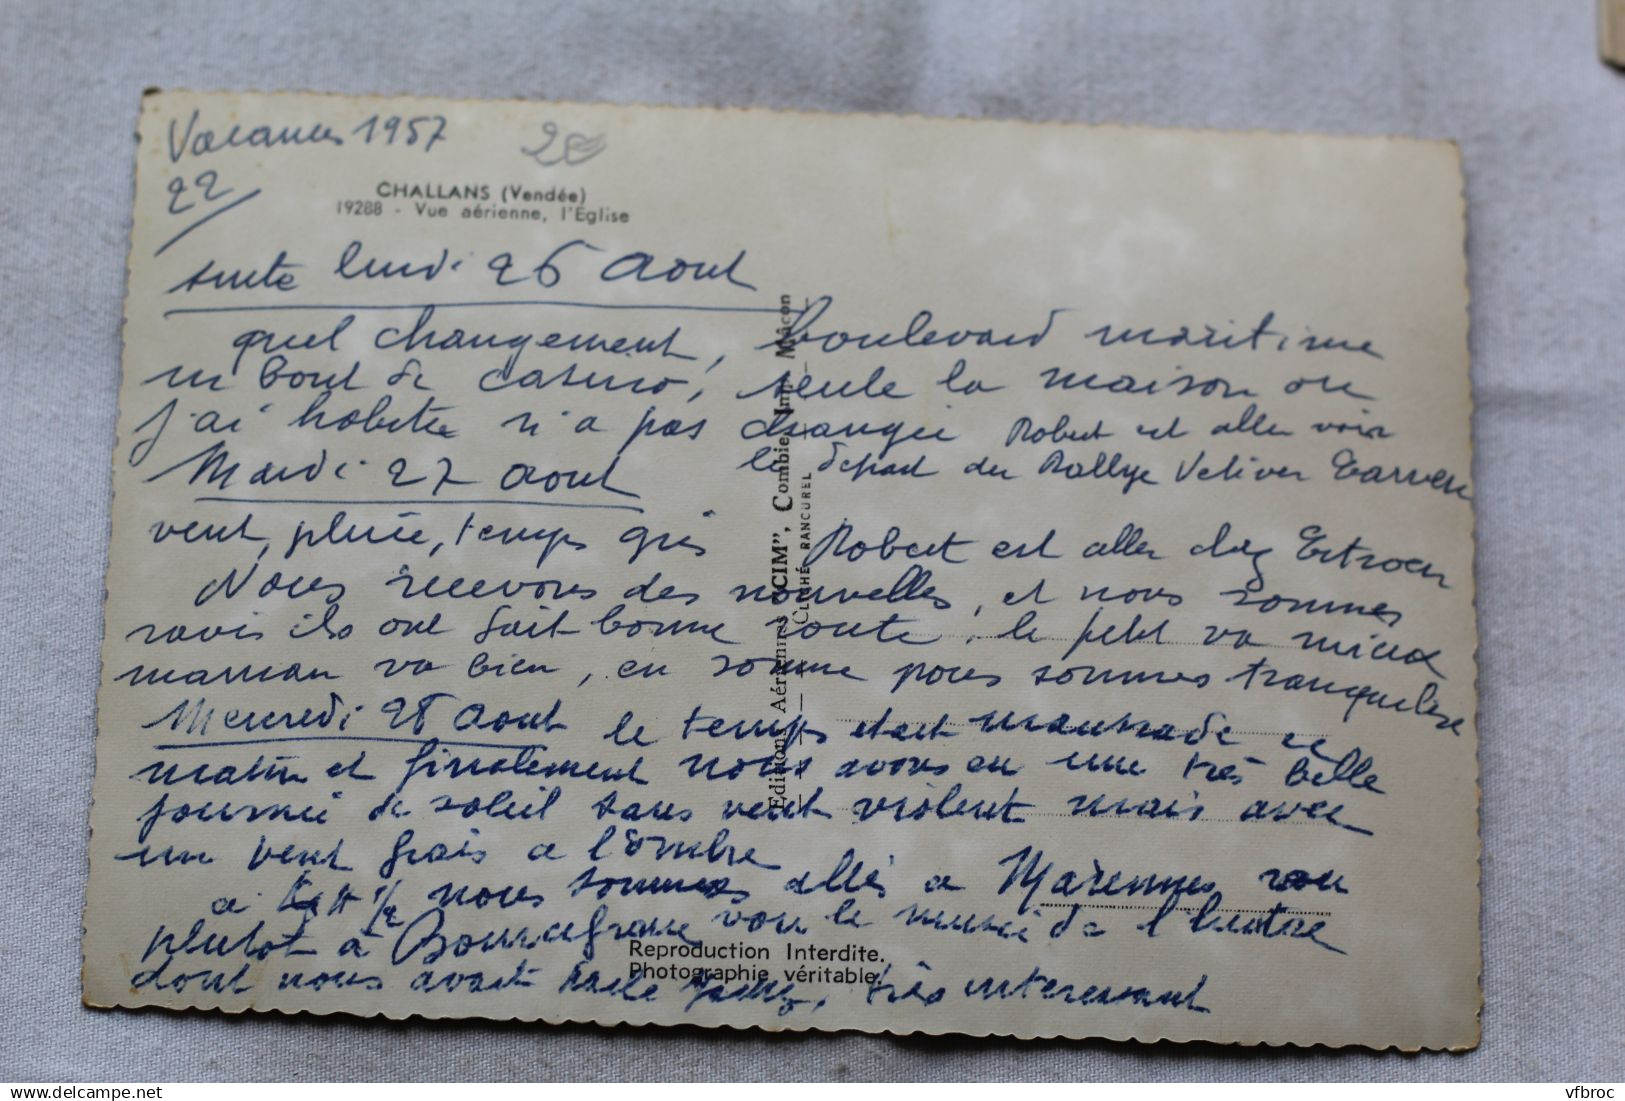 Vacances 1957 20
22
CHALLANS (Vendée)
19288 - Vue aérienne, l'Eglise
suite lundi 26 Aout
quel changement, boulevard maritime
un bout de casino, seule la maison ou
j'ai habitée n'a pas changée Robert est aller voir
le depart du Rallye
Mardi 27 Aout
vent, pluie, temps gris Robert est aller chez
Nous recevons des nouvelles, et nous sommes
ravis ils ont fait bonne route, le petit va mieux
maman va bien, en somme nous sommes
Mercredi 28 Aout le temps etait maussade ce
matin et finalement nous avons eu une très belle
journée de soleil sans vent violent mais avec
un vent frais a l'ombre
a 1/2 nous sommes allés a Marennes, ou
plutot à Bourcefranc voir le musée de l'huitre
dont nous avait parlé, très interessant
Editions Aériennes "CIM", Combier Imp. Mâcon
CLICHÉ RANCUREL
Reproduction Interdite.
Photographie véritable.
vfbroc